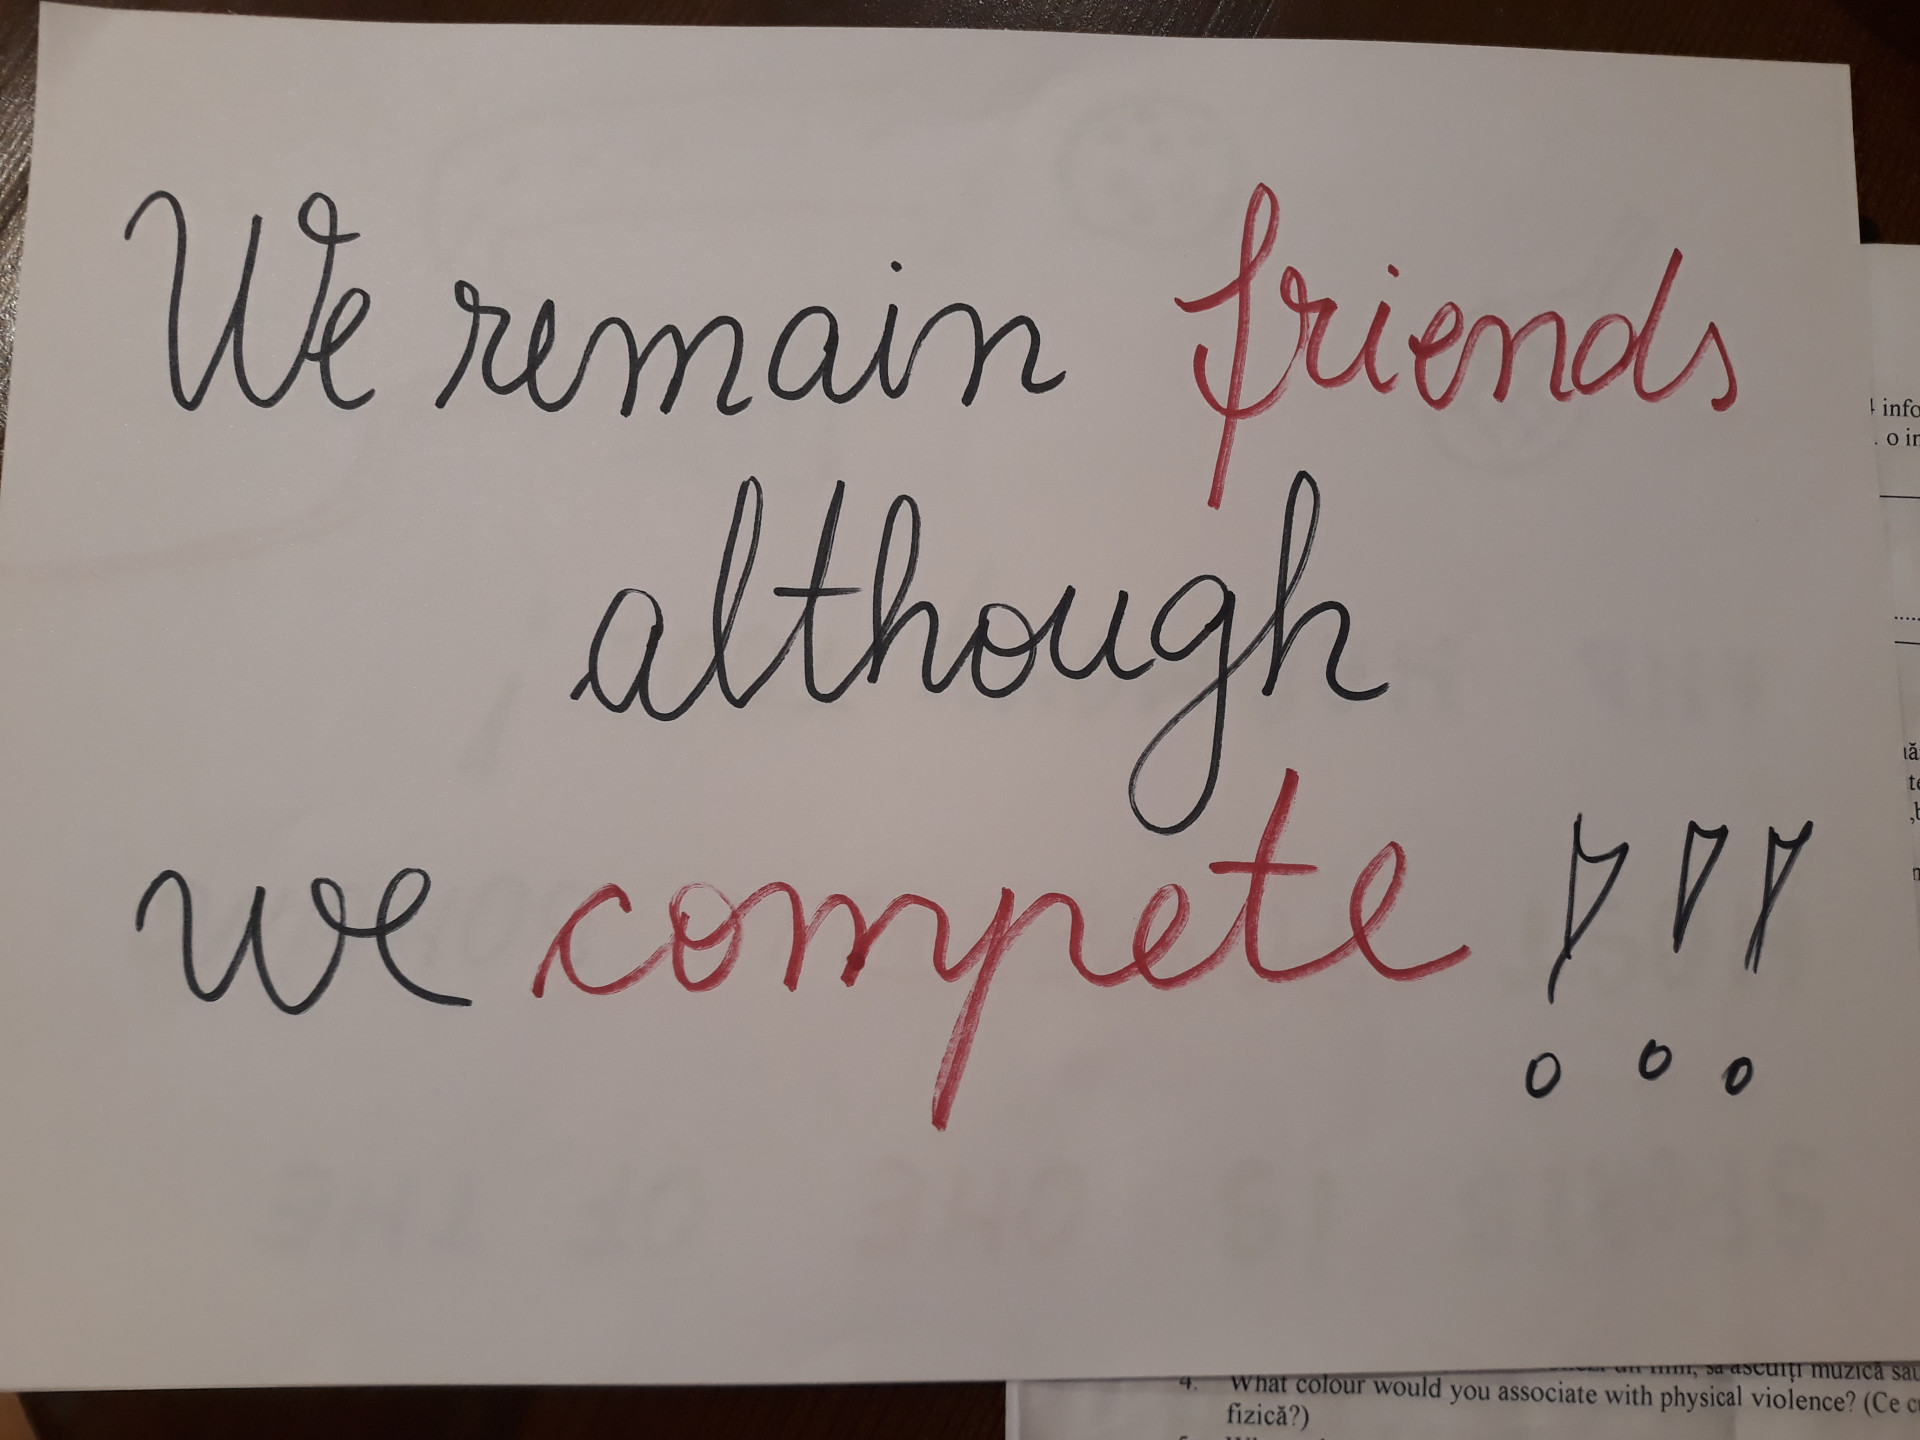 We remain friends
although
we compete !!!
info
o in
muzică sau
4. What colour would you associate with physical violence? (Ce
fizică?)